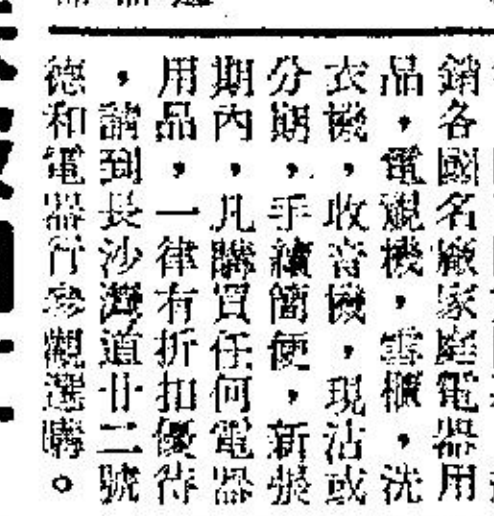 銷各國名廠家庭電器用
品，電視機，雪櫃，洗
衣機，收音機，現沽或
分期，手續簡便，新張
期內，凡購買任何電器
用品，一律有折扣優待
，請到長沙灣道廿二號
德和電器行參觀選購。